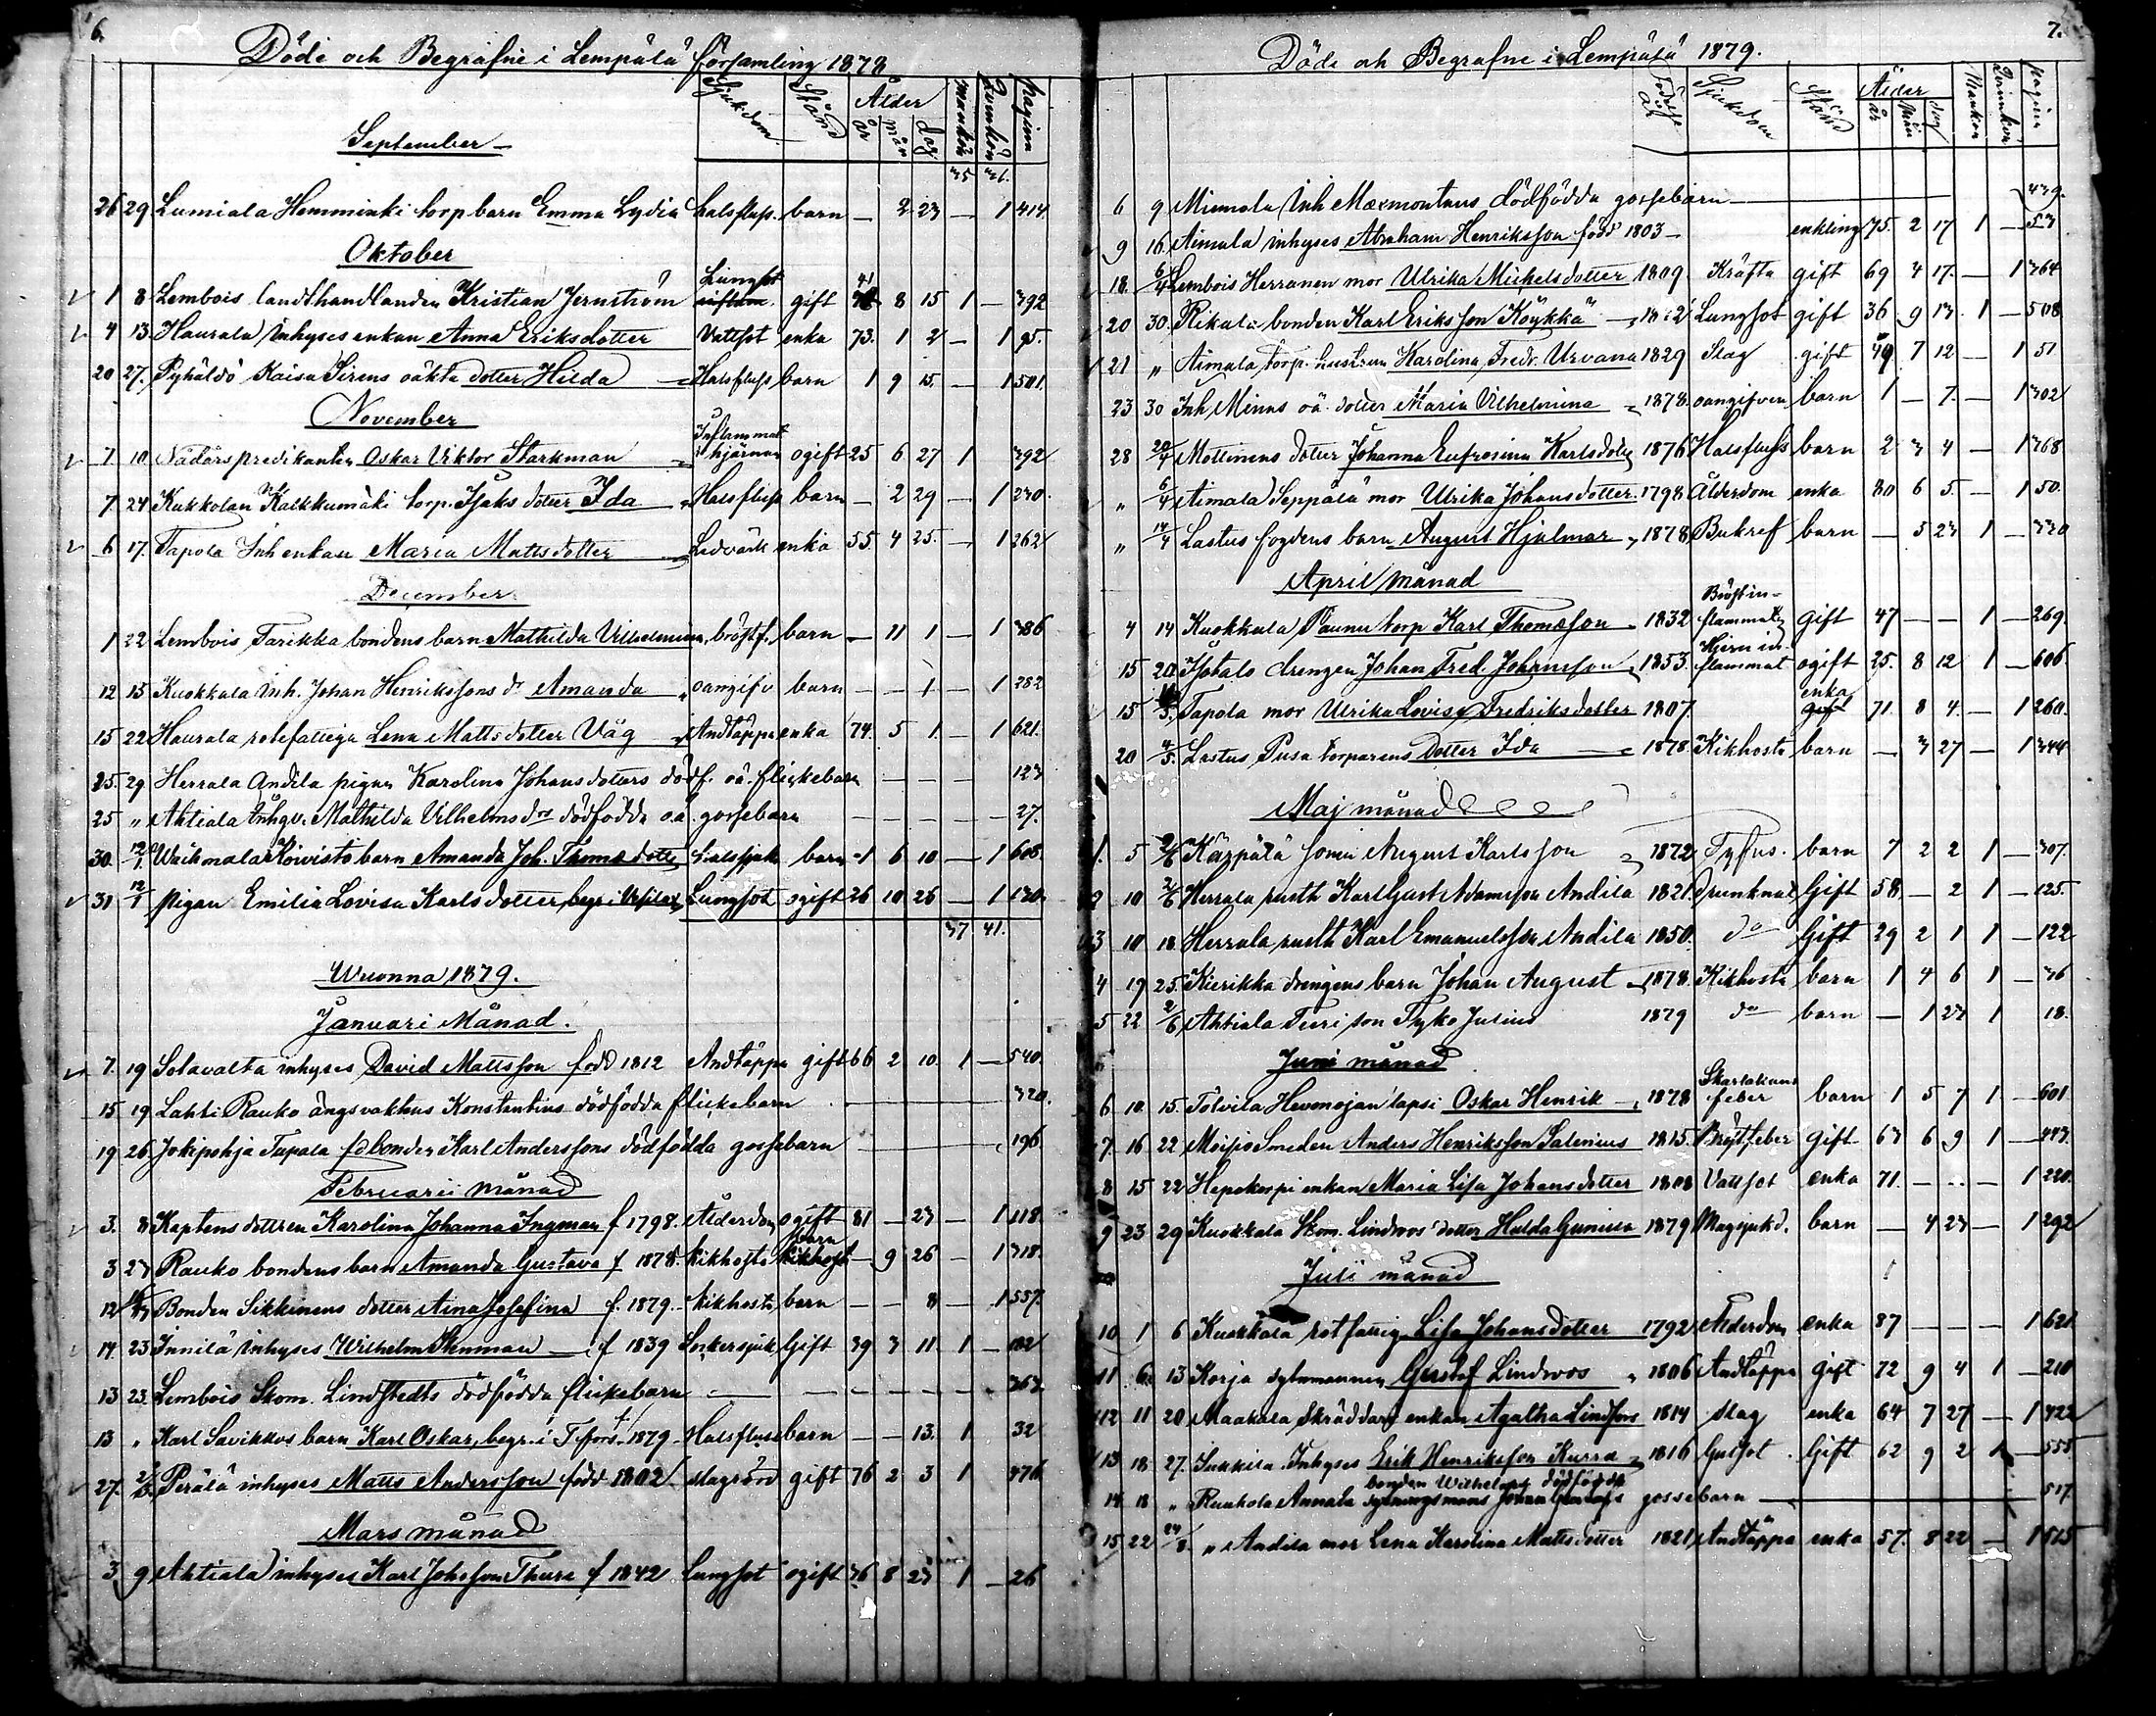 6.
Döde och Begrafne i Lempälä församling 1878
Sjukdom Stånd Ålder år mån dag mankön Qvinkön pagina
September
35 36.
26 29 Lumiala Hemminki torp barn Emma Lydia halsfluss. barn — 2 23 — 1 414
Oktober
1 8 Lembois landthandlanden Kristian Jernström Lungsot gift 41 8 15 1 — 392
4 13 Haurala inhyses enkan Anna Eriksdotter Vattsot enka 73. 1 2 — 1 95.
20 27. Pyhältö Kaisa Sirens oäkta dotter Hilda Halsfluss barn 1 9 15. — 1 501.
November
7 10 Nådårspredikanten Oskar Viktor Starkman Inflammat i hjärnan ogift 25 6 27 1 392
7 24 Kukkolan Kalkkumäki torp. Isaks dotter Ida Halsfluss barn — 2 29 — 1 230.
6 17. Tapola Inh enkan Maria Mattsdotter Ledvärk enka 55. 4 25. — 1 262
December
1 22 Lembois Tarikka bondens barn Mathilda Vilhelmina, bröstf. barn — 11 1 — 1 386
12 15 Kuokkala Inh. Johan Henrikssons dr Amanda oangifv barn — — 1 — 1 282
15 22 Haurala rotefattiga Lena Mattsdotter Väg Andtäppa enka 74. 5 1. — 1 621.
25. 29 Herrala Andila pigan Karolina Johansdotters dödf. oä. flickebarn — — — 123
25 „ Ahtiala Inhys. Mathilda Vilhelmsdrs dödfödda oä. gossebarn — — — — 27.
30. 12/1 Waihmalar Koivisto barn Amanda Joh. Thomædotter Halssjuk barn 1 6 10 — 1 608.
31 12/1 pigan Emilia Lovisa Karlsdotter, begr. i Vesilax, Lungsot ogift 26 10 26 — 1 130.
37 41.
Wuonna 1879.
Januari Månad.
7. 19 Solavalta inhyses David Mattsson född 1812 Andtäppa gift 66 2 10. 1 — 540.
15 19 Lahti Rauko ängsvaktns Konstantins dödfödda flickebarn 320.
19 26 Jokipohja Tupala fd bonden Karl Anderssons dödfödda gossebarn 196
Februarii månad
3. 8 Kaptens dottren Karolina Johanna Ingman f 1798. Ålderdom ogift 81 — 23 — 1 118
3 23 Rauko bondens barn Amanda Gustava f 1878. Kikhosta barn — 9 26 — 1 318.
12 Bonden Sikkinens dotter Aina Josefina f. 1879. — kikhosta barn — — 8 — 1 557.
14 23 Innilä inhyses Wilhelm Stenman f 1839 Sockersjuk Gift 39 3 11. 1 — 102
13 23. Lembois Skom. Lindstedts dödfödda flickebarn — — — — — 363
13 „ Karl Savikkos barn Karl Oskar, begr. i T.fors. 1879. Halsfluss barn — — 13. 1 32
27. 2/3. Perälä inhyses Matts Andersson född 1802. slagrörd gift 76 2 3 1 476
Mars månad
3 9 Ahtiala inhyses Karl Johsson Thure f 1842 Lungsot ogift 36 8 23 1 — 26
7.
Döde och Begrafne i Lempälä 1879.
Födelse år Sjukdom Stånd Ålder år Mån dag Mankön Qvinnkön pagina
6 9 Miemola Inh Maxmontans dödfödda gossebarn 439.
9 16. Aimala inhyses Abraham Henriksson född 1803 — enkling 75. 2 17 1 — 53
18. 6/4 Lembois Herranen mor Ulrika Mickelsdotter 1809. Kräfta gift 69 4 17. — 1 364
20 30. Rikala bonden Karl Eriksson Köykkä Lungsot gift 36 9 13. 1 — 508
21 „ Aimala torp. hustrun Karolina Fredr. Urvana 1829 Slag gift 49 7 12 — 1 51
23 30 Inh Minas oä. dotter Maria Vilhelmina 1878. oangifven barn 1 — 7. — 1 302
28 20/4 Mottinens dotter Johanna Eufrosina Karlsdotter 1876 Halsfluss barn 2 3 4 — 1 368
„ 6/4 Aimala Seppälä mor Ulrika Johansdotter. 1798 Ålderdom enka 80 6 5. — 1 50.
„ 14/4 Lastus fogdens barn August Hjalmar 1878 Bukref barn — 5 23 1 — 330
April månad
4 14 Kuokkala Paunu torp Karl Thomasson 1832 Bröstinflammat gift 47 — — 1 — 269.
15 20 Isotalo drengen Johan Fred. Johansson 1853. Hjerninflammat ogift 25. 8 12 1 — 606
15 Tapola mor Ulrika Lovisa Fredriksdotter 1807. enka 71. 8 4. — 1 260.
20 4/5. Lastus Pusa torparens Dotter Ida 1878. Kikhosta barn — 3 27 — 1 344
Maj månad
1. 5 2/6 Kärpälä sonen August Karlsson 1872 Tyfus. barn 7 2 2 1 — 307.
2 10 2/6 Herrala rusth Karl Gust Adamsson Andila 1821. Drunknat Gift 58 — 2 1 — 125.
3 10 18 Herrala rusth Karl Emanuelsson Andila 1850. do Gift 29 2 1 1 — 122
4 19 25. Kierikka drengens barn Johan August 1878. Kikhosta barn 1 4 6 1 — 36
5 22 2/6 Ahtiala Turi son Tyko Julius 1879 do barn — 1 23 1 18.
Juni månad
6 10 15. Tolvila Hevonojan lapsi Oskar Henrik 1878 Skarlakans feber barn 1 5 7 1 — 601
7. 16 22 Moisio Smeden Anders Henriksson Salenius 1815. Bröstfeber Gift 63 6 9 1 — 443.
8 15 22 Hepokorpi enkan Maria Lisa Johansdotter 1808 Vattsot enka 71. — .. — 1 220.
9 23 29 Kuokkala Skom. Lindroos dotter Hulda Gunilla 1879 Magsjukd. barn — 4 23 — 1 292
Juli månad
10 1 6 Kuokkala rotfattig Lisa Johansdotter 1792 Ålderdom enka 87 — — — 1 621
11 6. 13 Korja sytomannen Gustaf Lindroos 1806 Andtäppa gift 72 9 4 1 — 210
12 11 20 Maakala Skräddars enkan Agatha Lindfors 1814 slag enka 64 7 27 — 1 422
13 18 27. Sukkila Inhyses Erik Henriksson Kurra 1816 Gulsot. Gift 62 9 2 1 — 555
bonden Wilhelms dödfödde
14 18 „ Ruuhola Annala gossebarn 517.
15 22 24/8. „ Andila mor Lena Karolina Mattsdotter 1821 Andtäppa enka 57. 8 22 — 1 515